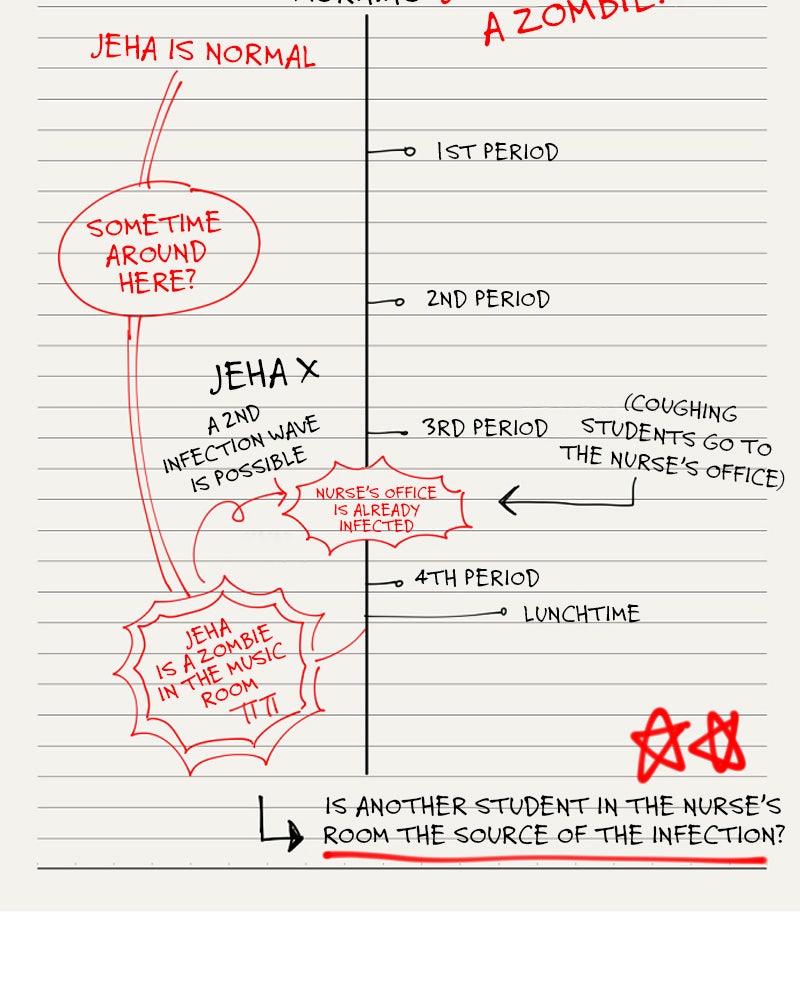 A ZOMBIE?
JEHA IS NORMAL
1ST PERIOD
SOMETIME
AROUND
HERE?
2ND PERIOD
JEHA X
A 2ND
INFECTION WAVE
IS POSSIBLE
3RD PERIOD
(COUGHING
STUDENTS GO TO
THE NURSE'S OFFICE)
NURSE'S OFFICE
IS ALREADY
INFECTED
4TH PERIOD
LUNCHTIME
JEHA
IS A ZOMBIE
IN THE MUSIC
ROOM
ㅠㅠ
IS ANOTHER STUDENT IN THE NURSE'S
ROOM THE SOURCE OF THE INFECTION?